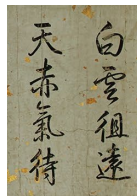 白雲徂遠
天赤氣待